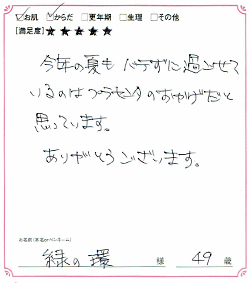 ☑お肌 ☑からだ □更年期 □生理 □その他
[満足度]★★★★★
今年の夏も バテずに過ごせて
いるのはプラセンタのおかげだと
思っています。
ありがとうございます。
お名前(本名orペンネーム)
緑の環 様 49 歳